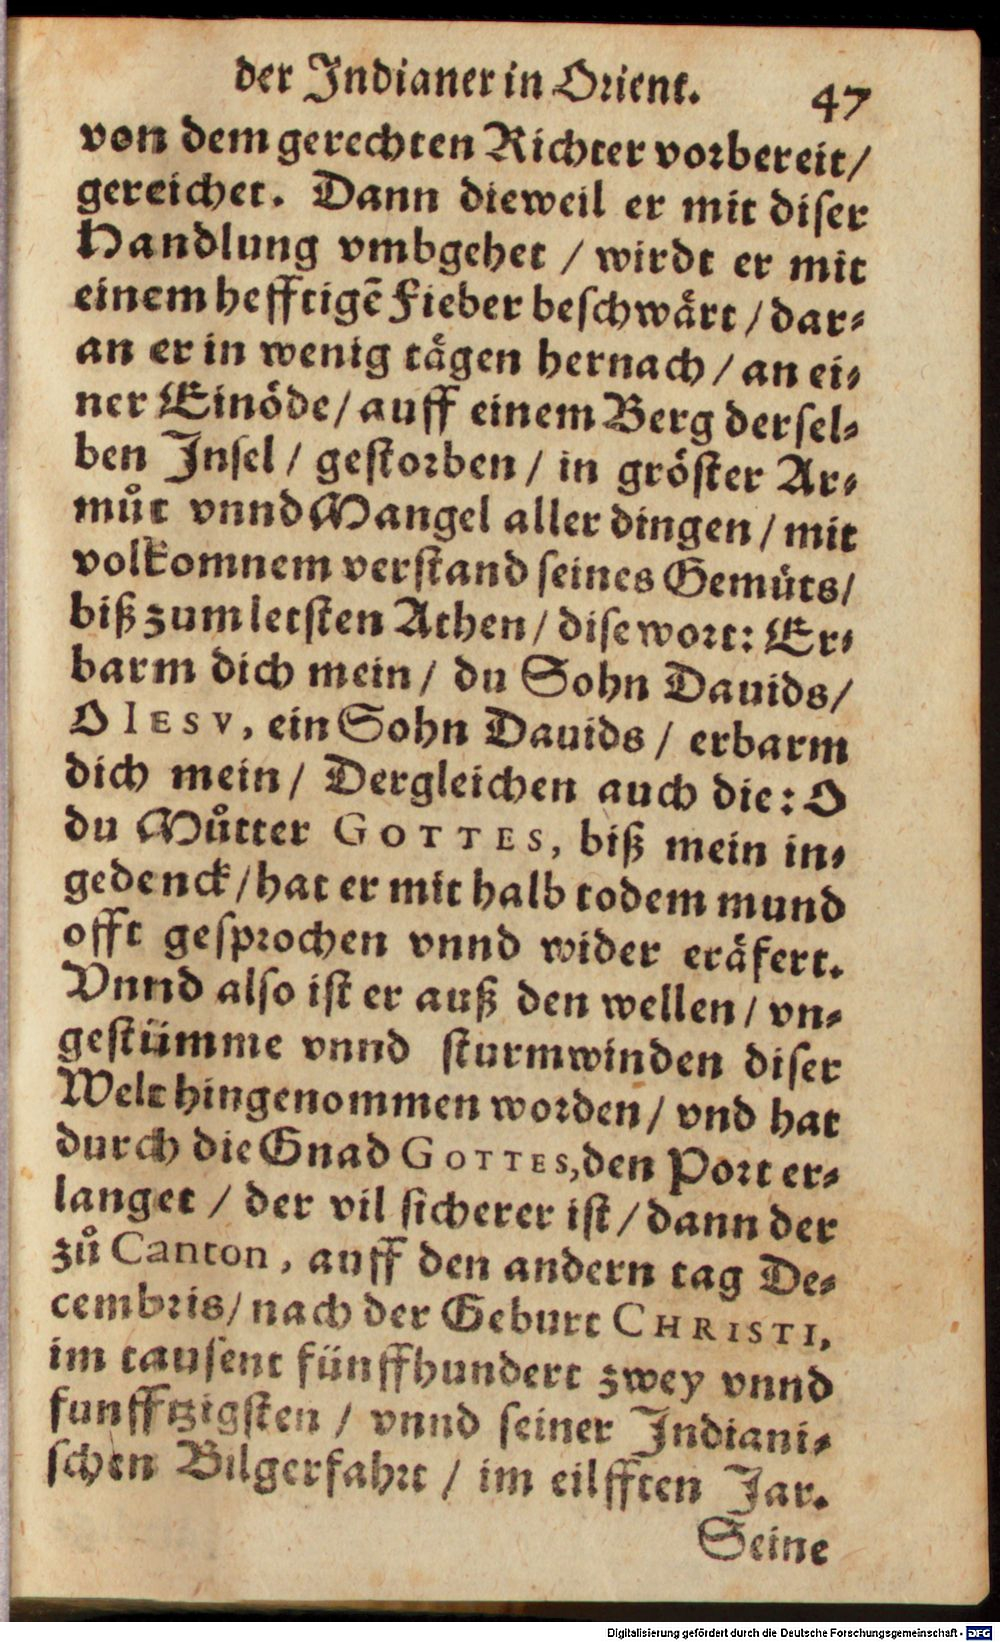 der Indianer in Orient. 47
von dem gerechten Richter vorbereit/
gereichet. Dann dieweil er mit diser
Handlung vmbgehet / wirdt er mit
einem hefftigẽ Fieber beschwårt / dar⸗
an er in wenig tågen hernach / an ei⸗
ner Einöde/ auff einem Berg dersel⸗
ben Insel / gestorben / in gröster Ar⸗
můt vnnd Mangel aller dingen / mit
volkomnem verstand seines Gemüts/
biß zum letsten Athen / dise wort: Er⸗
barm dich mein / du Sohn Dauids/
O IESV, ein Sohn Dauids / erbarm
dich mein / Dergleichen auch die: O
du Můtter GOTTES, biß mein in⸗
gedenck / hat er mit halb todem mund
offt gesprochen vnnd wider eräfert.
Vnnd also ist er auß den wellen / vn⸗
gestümme vnnd sturmwinden diser
Welt hingenommen worden / vnd hat
durch die Gnad GOTTES, den Port er⸗
langet / der vil sicherer ist / dann der
zů Canton, auff den andern tag De⸗
cembris/ nach der Geburt CHRISTI,
im tausent fünffhundert zwey vnnd
funfftzigsten / vnnd seiner Indiani⸗
schen Bilgerfahrt / im eilfften Jar.
Seine
Digitalisierung gefördert durch die Deutsche Forschungsgemeinschaft - DFG